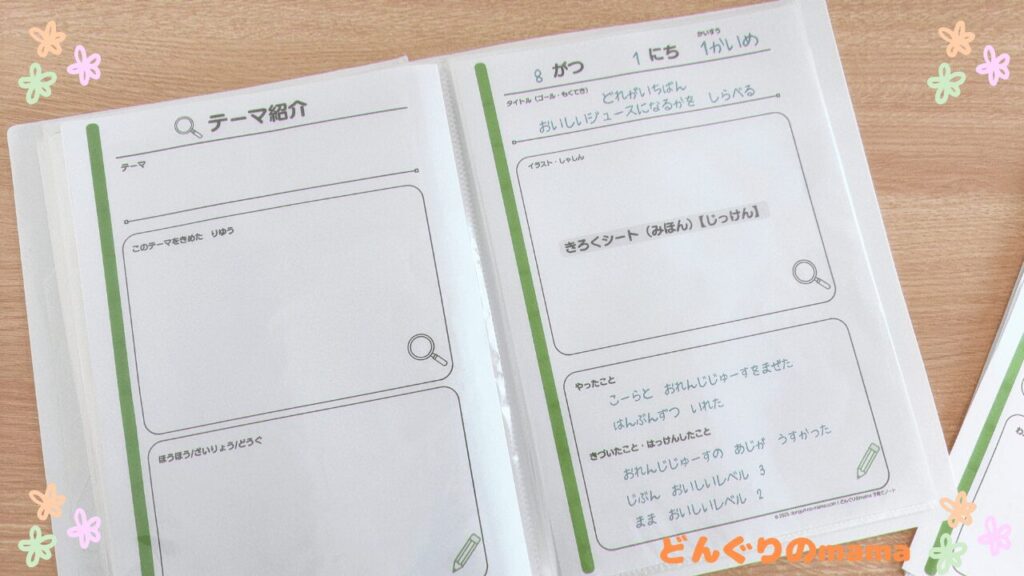 テーマ紹介
テーマ
このテーマをきめた りゆう
ほうほう/ざいりょう/どうぐ
かいすう
8 がつ 1 にち 1かいめ
タイトル（ゴール・もくてき） どれがいちばん
おいしいジュースになるかを しらべる
イラスト・しゃしん
きろくシート（みほん）【じっけん】
やったこと
こーらと おれんじじゅーすをまぜた
はんぶんずつ いれた
きづいたこと・はっけんしたこと
おれんじじゅーすの あじが うすかった
じぶん おいしいレベル 3
まま おいしいレベル 2
どんぐりのmama